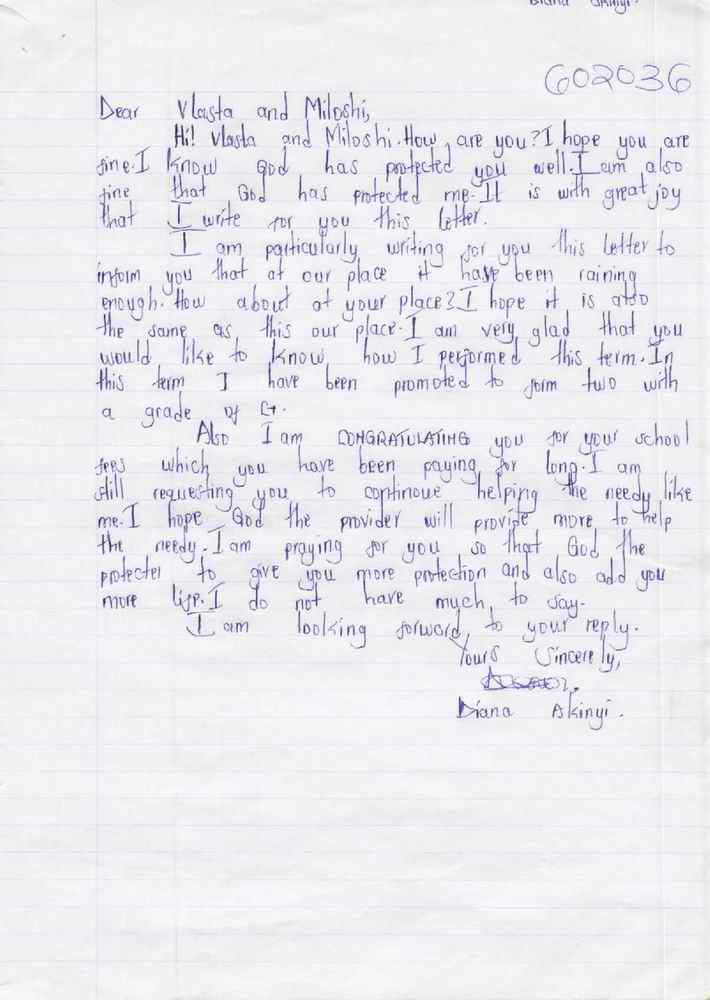 Diana Akinyi.
602036
Dear Vlasta and Miloshi,
Hi! Vlasta and Miloshi. How are you? I hope you are
fine. I know God has protected you well. I am also
fine that God has protected me. It is with great joy
that I write for you this letter.
I am particularly writing for you this letter to
inform you that at our place it have been raining
enough. How about at your place? I hope it is also
the same as this our place. I am very glad that you
would like to know how I performed this term. In
this term I have been promoted to form two with
a grade of
Also I am CONGRATULATING you for your school
fees which you have been paying for long. I am
still requesting you to continoue helping the needy like
me. I hope God the provider will provide more to help
the needy. I am praying for you so that God the
protecter to give you more protection and also add you
more life. I do not have much to say.
I am looking forward to your reply.
Yours Sincerely,
Diana Akinyi.